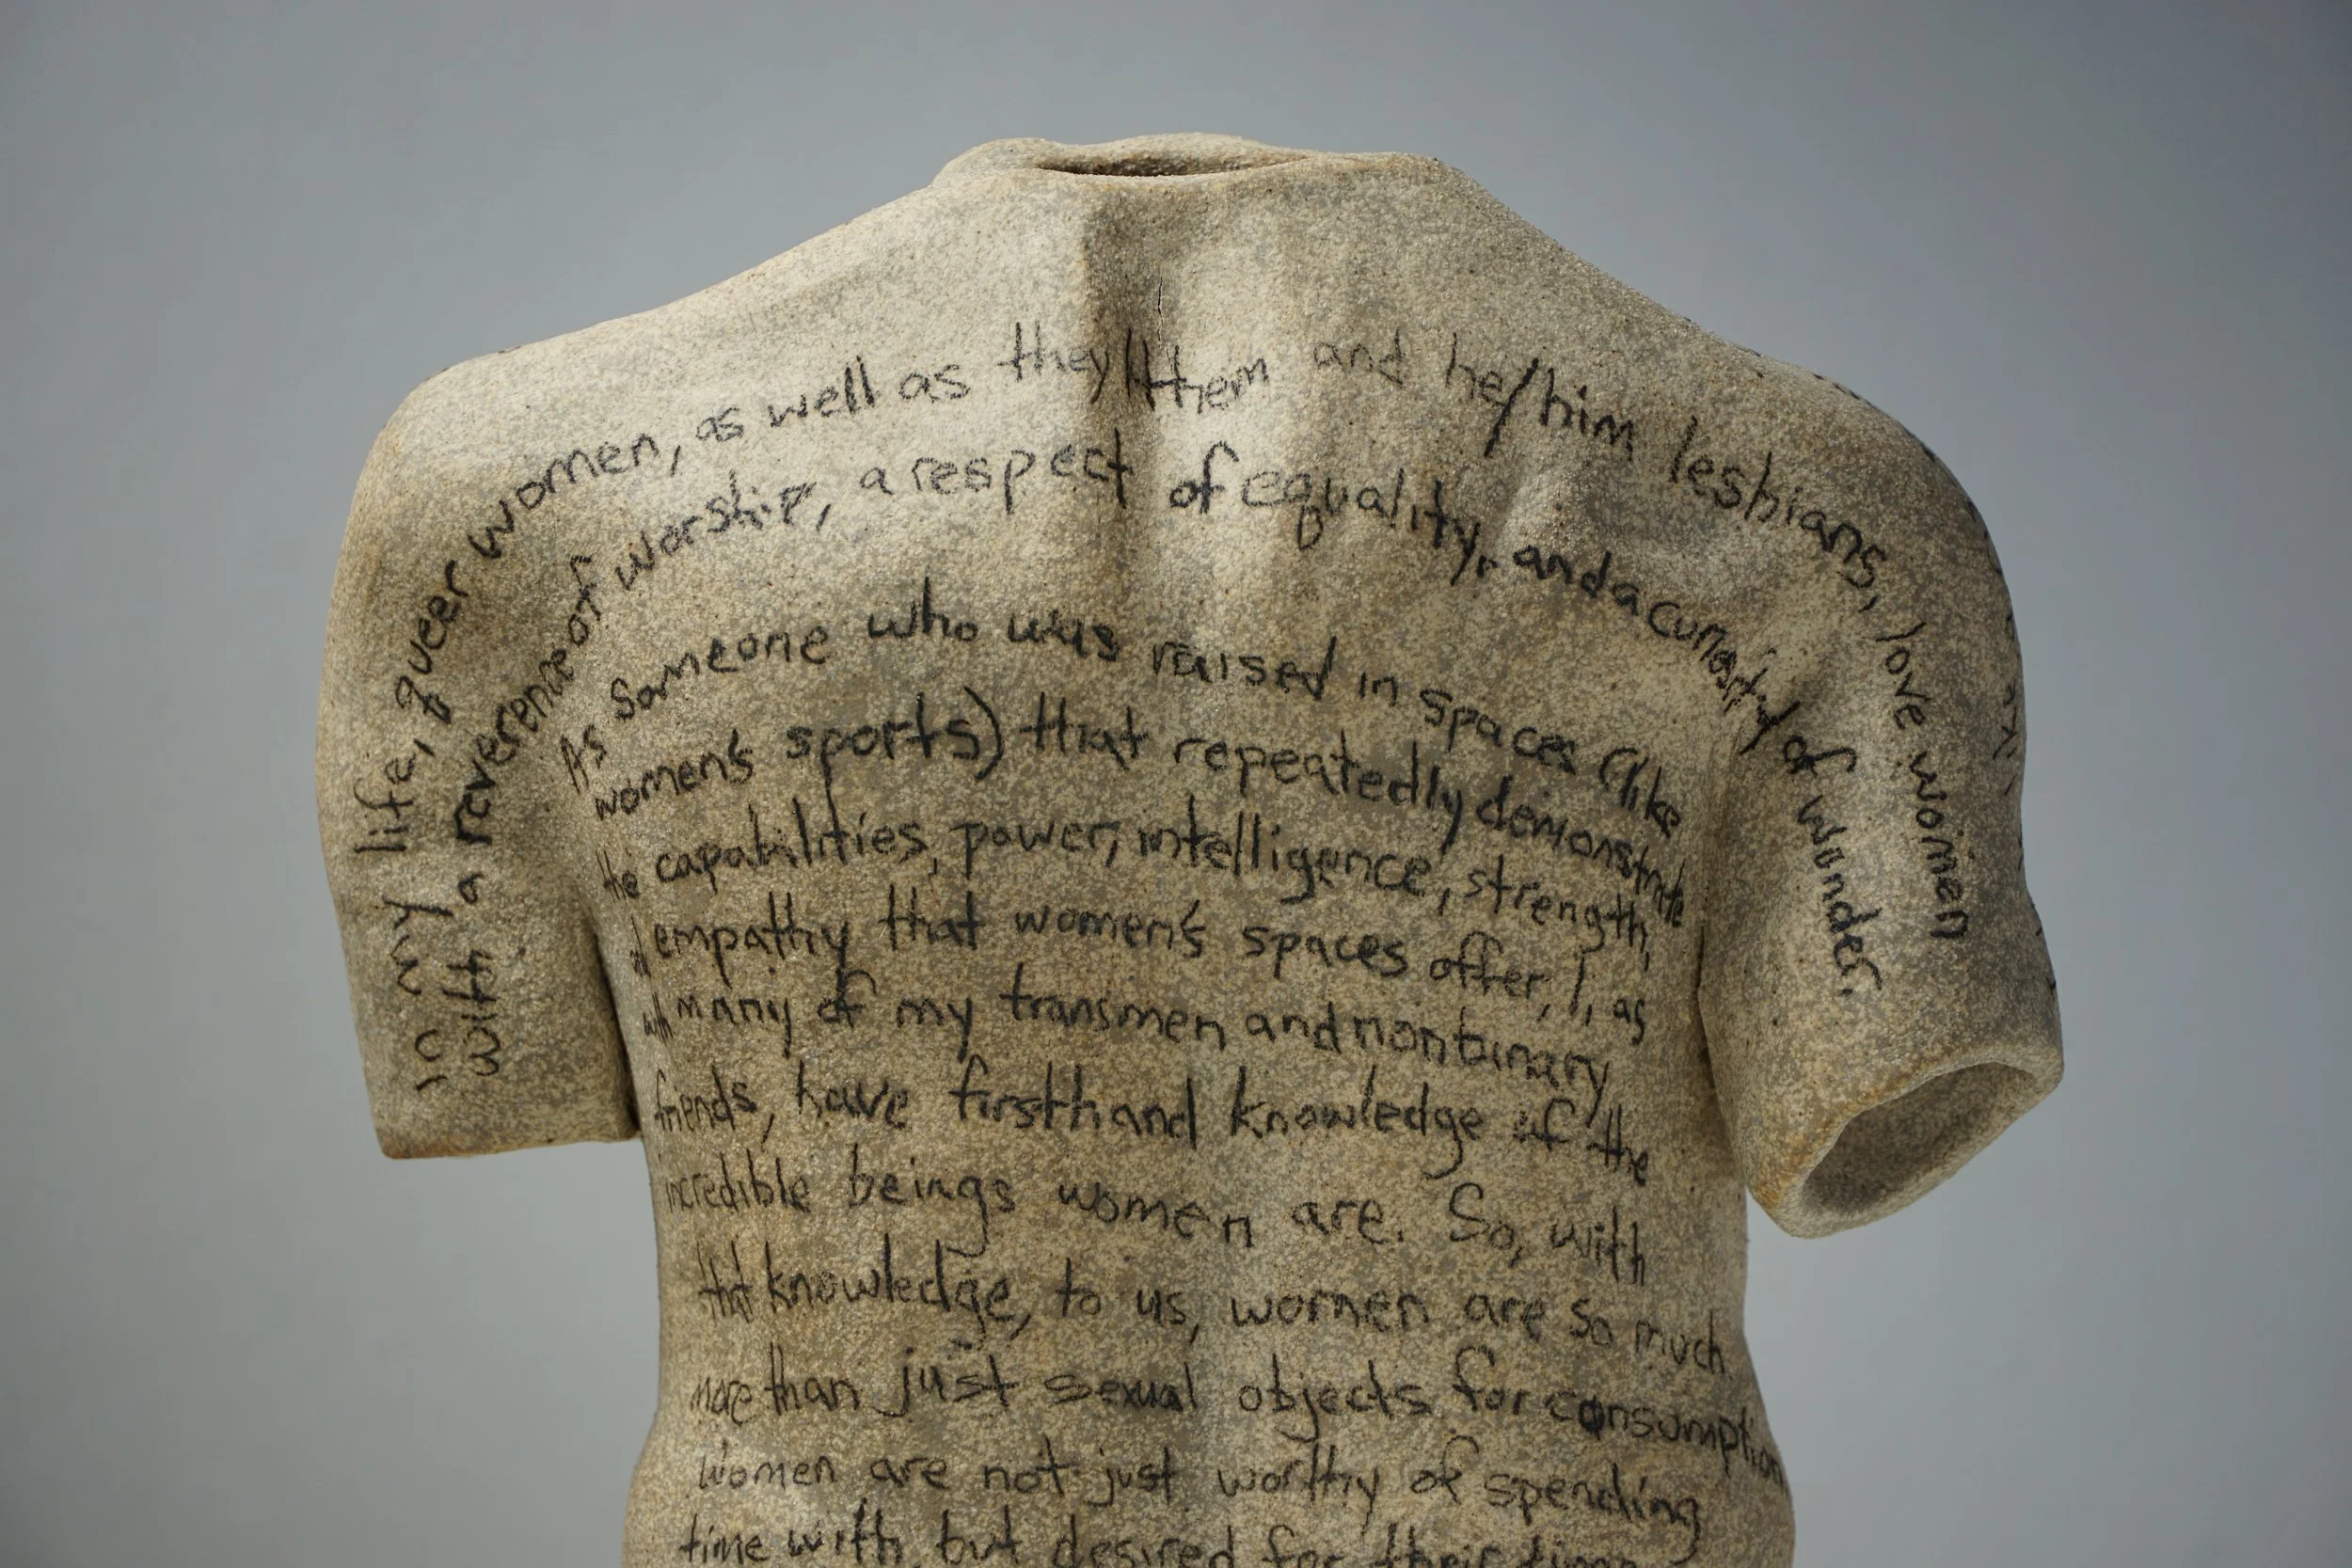 in my life, queer women, as well as they/them and he/him lesbians, love women
with a reverence of worship, a respect of equality, and a curiosity of wonder.
As someone who was raised in spaces (like
women's sports) that repeatedly demonstrate
the capabilities, power, intelligence, strength,
and empathy that women's spaces offer, I, as
with many of my transmen and nonbinary
friends, have firsthand knowledge of the
incredible beings women are. So, with
that knowledge, to us, women are so much
more than just sexual objects for consumption
Women are not just worthy of spending
time with, but desired for their time